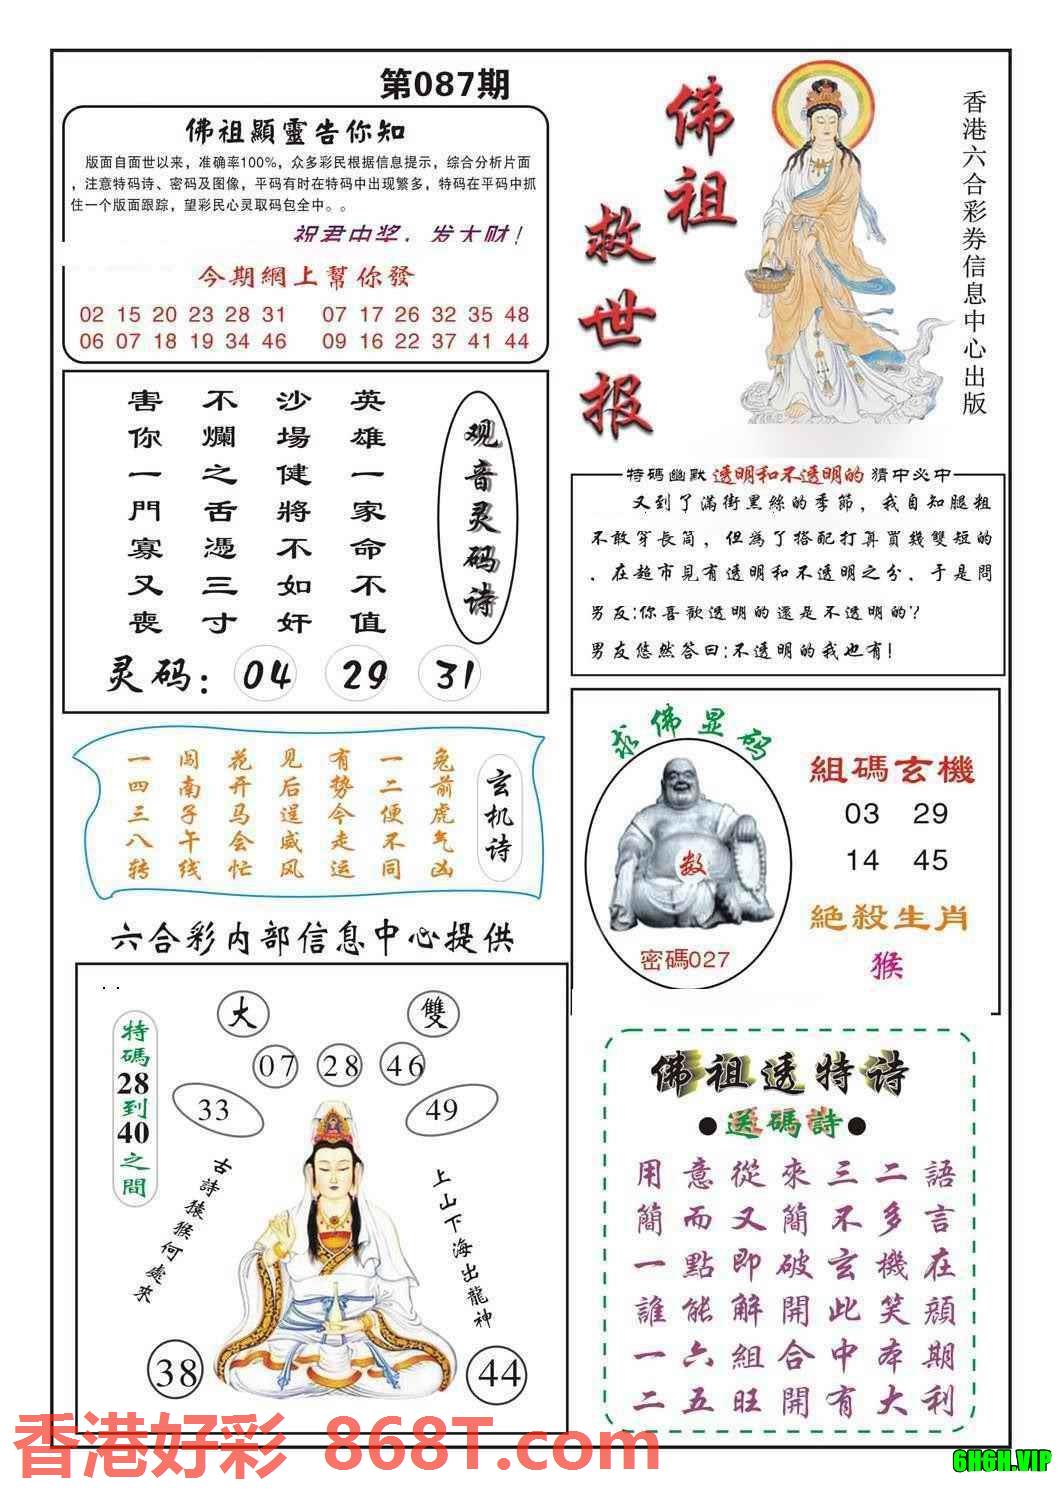 第087期
佛祖顯靈告你知
版面自面世以来，准确率100%，众多彩民根据信息提示，综合分析片面
，注意特码诗、密码及图像，平码有时在特码中出现繁多，特码在平码中抓
住一个版面跟踪，望彩民心灵取码包全中。。
祝君中奖，发大财！
今期網上幫你發
02 15 20 23 28 31 07 17 26 32 35 48
06 07 18 19 34 46 09 16 22 37 41 44
佛祖
救世报
香港六合彩券信息中心出版
观音灵码诗
英雄一家命不值
沙場健將不如奸
不爛之舌憑三寸
害你一門寡又喪
灵码：04 29 31
特碼幽默 透明和不透明的 猜中必中
又到了滿街黑絲的季節，我自知腿粗
不敢穿長筒，但為了搭配打算買幾雙短的
．在超市見有透明和不透明之分．于是問
男友:你喜歡透明的還是不透明的?
男友悠然答曰:不透明的我也有!
玄机诗
兔前虎气凶
一二便不同
有势今走运
见后逞威风
花开马会忙
闯南子午线
一四三八转
求佛显码
数
密碼027
組碼玄機
03 29
14 45
絕殺生肖
猴
六合彩内部信息中心提供
特碼28到40之間
大
雙
07 28 46
33
49
古詩猿猴何處來
上山下海出龍神
38
44
佛祖透特诗
●送碼詩●
用意從來三二語
簡而又簡不多言
一點即破玄機在
誰能解開此笑顔
一六組合中本期
二五旺開有大利
香港好彩 868T.com
6H6H.VIP